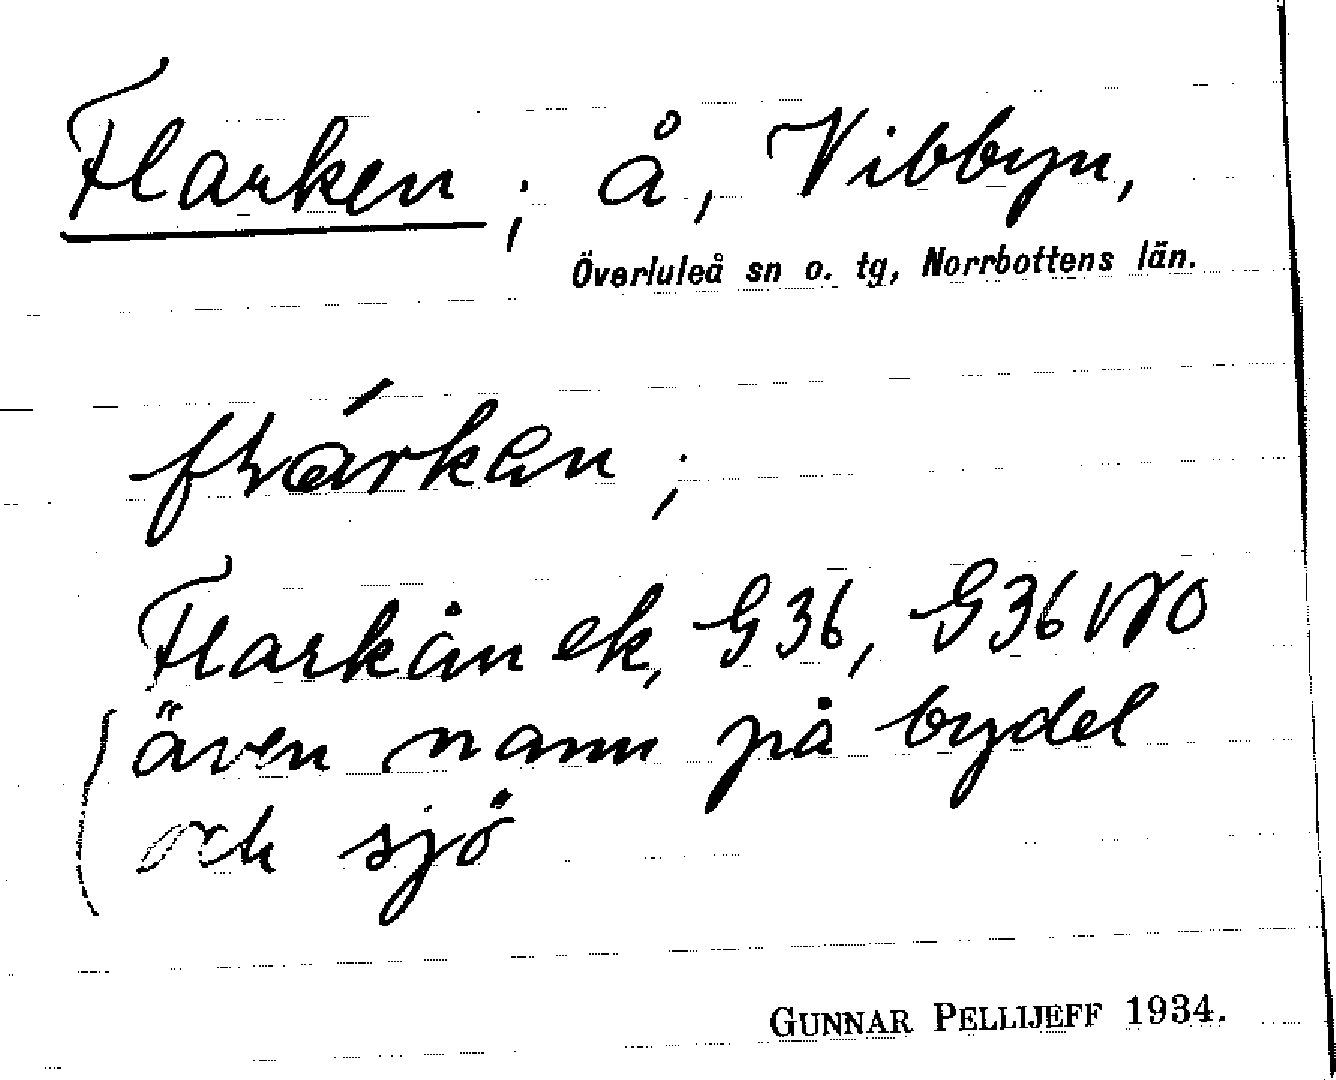 Flarken; å, Vibbyn,
Överluleå sn o. tg, Norrbottens län.
Flarkån ek, G36, G36 VNO
(även namn på bydel
och sjö
GUNNAR PELLIJEFF 1934.